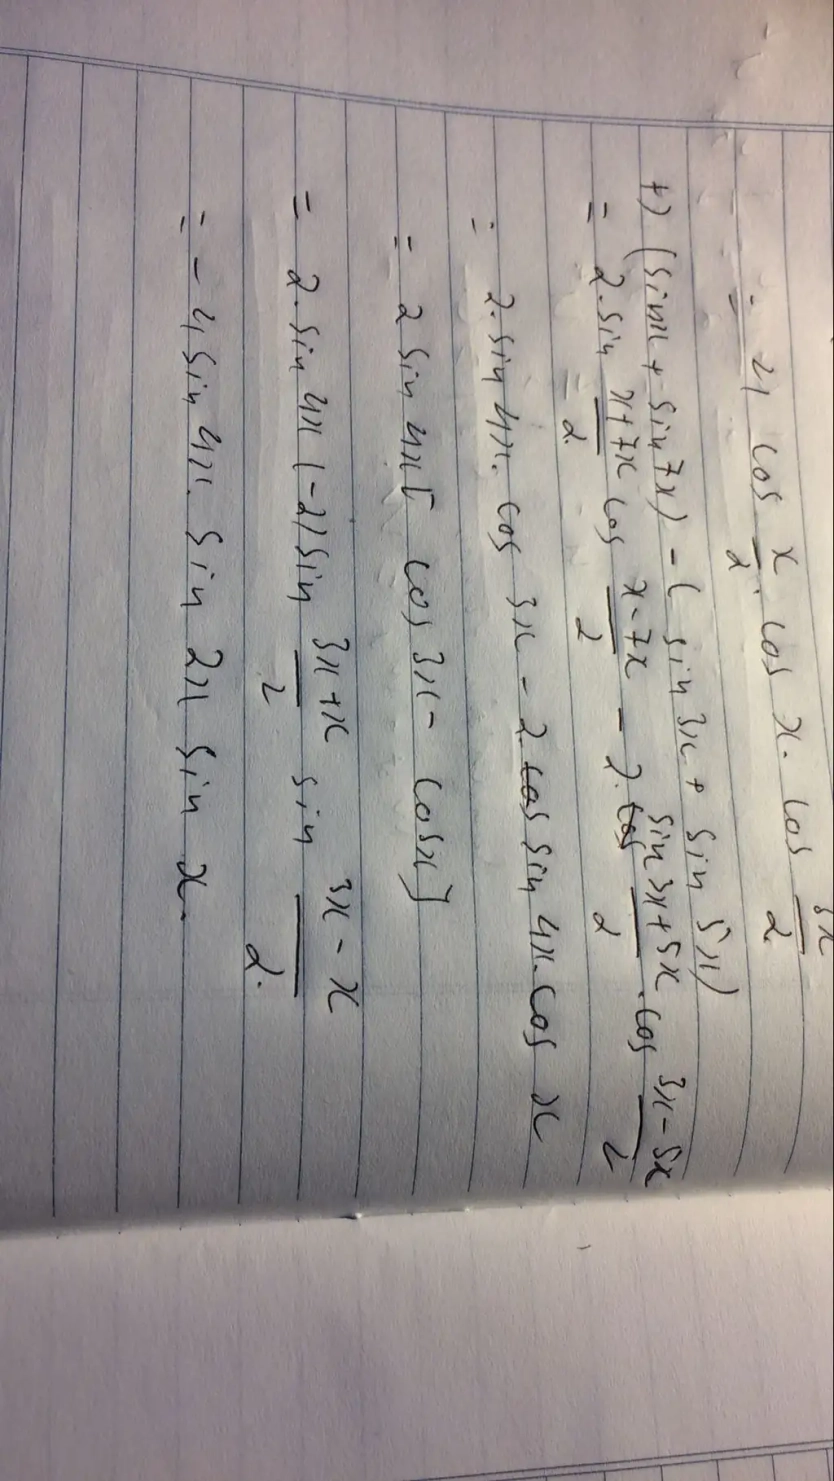 = 4 cos x/2 . cos x . cos 3x/2
f) (sinx + sin7x) - (sin3x + sin5x)
= 2.sin x+7x/2 cos x-7x/2 - 2.sin 3x+5x/2 .cos 3x-5x/2
= 2.sin4x. cos 3x - 2 sin 4x.cos x
= 2 sin 4x[ cos 3x - cosx]
= 2.sin 4x (-2)sin 3x+x/2 sin 3x-x/2.
= -4sin 4x. sin 2x sin x.